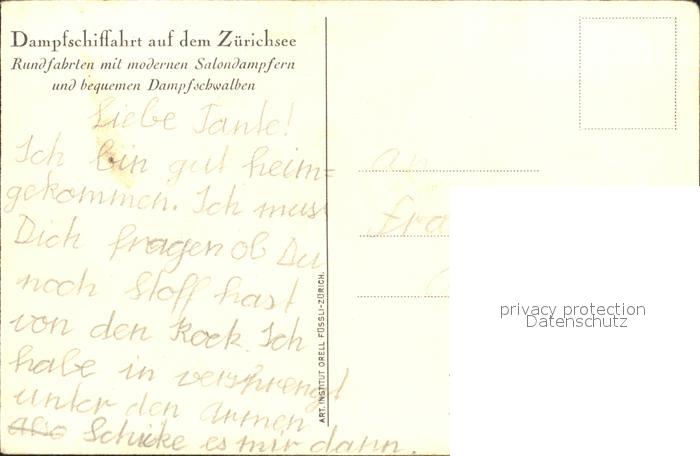 Dampfschiffahrt auf dem Zürichsee
Rundfahrten mit modernen Salondampfern
und bequemen Dampfschwalben
Liebe Tante!
Ich bin gut heim=
gekommen. Ich muss
Dich fragen ob Du
noch Stoff hast
von den Rock. Ich
habe in versprengt
unter den armen
also Schike es mir dann.
ART. INSTITUT ORELL FÜSSLI-ZÜRICH.
an
Fra
privacy protection
Datenschutz